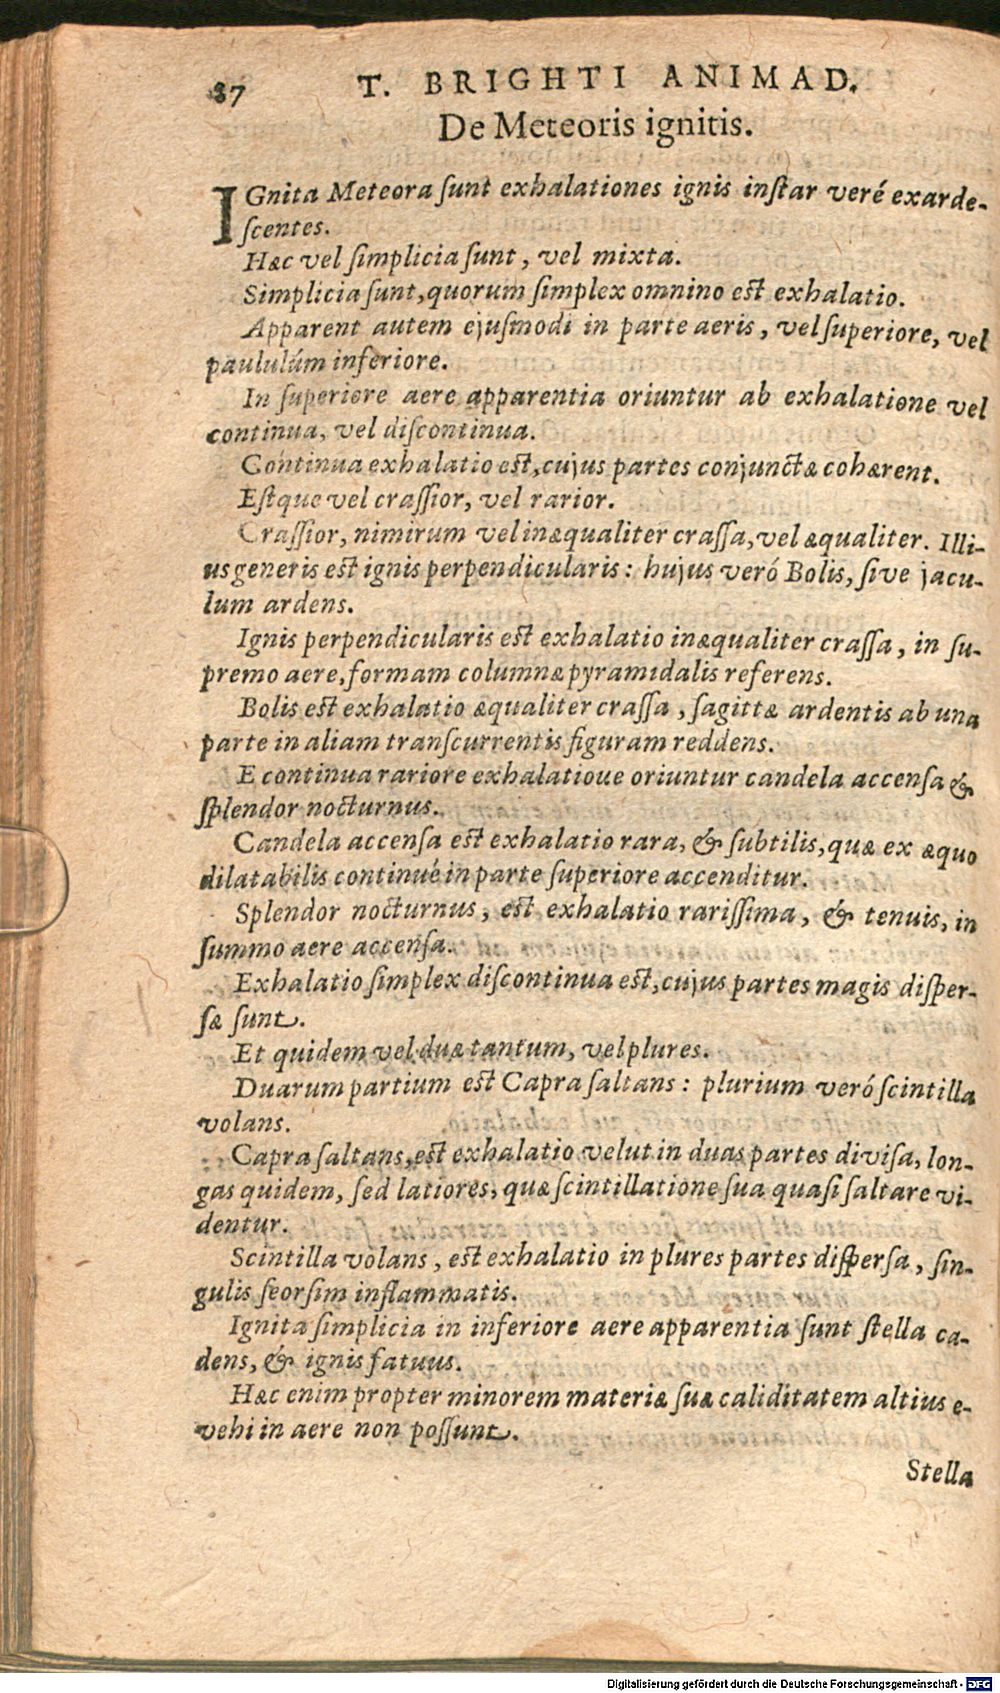 87 T. BRIGHTI ANIMAD.
De Meteoris ignitis.
IGnita Meteora ſunt exhalationes ignis inſtar veré exarde-
ſcentes.
Hæc vel ſimplicia ſunt, vel mixta.
Simplicia ſunt, quorum ſimplex omnino eſt exhalatio.
Apparent autem ejuſmodi in parte aeris, vel ſuperiore, vel
paululúm inferiore.
In ſuperiore aere apparentia oriuntur ab exhalatione vel
continua, vel diſcontinua.
Continua exhalatio eſt, cujus partes conjunctæ cohærent.
Eſtque vel craſſior, vel rarior.
Craſſior, nimirum vel inæqualiter craſſa, vel æqualiter. Illi-
us generis eſt ignis perpendicularis: hujus veró Bolis, ſive jacu-
lum ardens.
Ignis perpendicularis eſt exhalatio inæqualiter craſſa, in ſu-
premo aere, formam columnæ pyramidalis referens.
Bolis eſt exhalatio æqualiter craſſa, ſagittæ ardentis ab una
parte in aliam tranſcurrentis figuram reddens.
E continua rariore exhalatioue oriuntur candela accenſa &
ſplendor nocturnus.
Candela accenſa eſt exhalatio rara, & ſubtilis, quæ ex æquo
dilatabilis continué in parte ſuperiore accenditur.
Splendor nocturnus, eſt exhalatio rariſſima, & tenuis, in
ſummo aere accenſa.
Exhalatio ſimplex diſcontinua eſt, cujus partes magis diſper-
ſæ ſunt.
Et quidem vel duæ tantum, vel plures.
Duarum partium eſt Capra ſaltans: plurium veró ſcintilla
volans.
Capra ſaltans, eſt exhalatio velut in duas partes diviſa, lon-
gas quidem, ſed latiores, quæ ſcintillatione ſua quaſi ſaltare vi-
dentur.
Scintilla volans, eſt exhalatio in plures partes diſperſa, ſin-
gulis ſeorſim inflammatis.
Ignita ſimplicia in inferiore aere apparentia ſunt ſtella ca-
dens, & ignis fatuus.
Hæc enim propter minorem materiæ ſuæ caliditatem altius e-
vehi in aere non poſſunt.
Stella
Digitalisierung gefördert durch die Deutsche Forschungsgemeinschaft - DFG